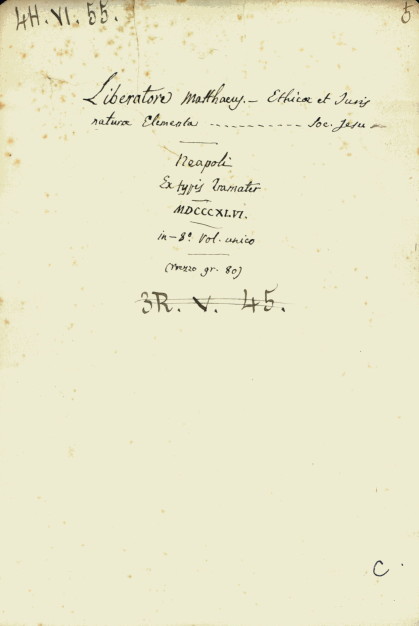 4H. VI. 55. 5
Liberatore Matthaeus. – Ethicæ et Juris
naturæ Elementa ---------- Soc. Jesu –
Neapoli
Ex typis Tramater
MDCCCXLVI.
in-8º. Vol. unico
(Prezzo gr. 80)
3R. V. 45.
C.